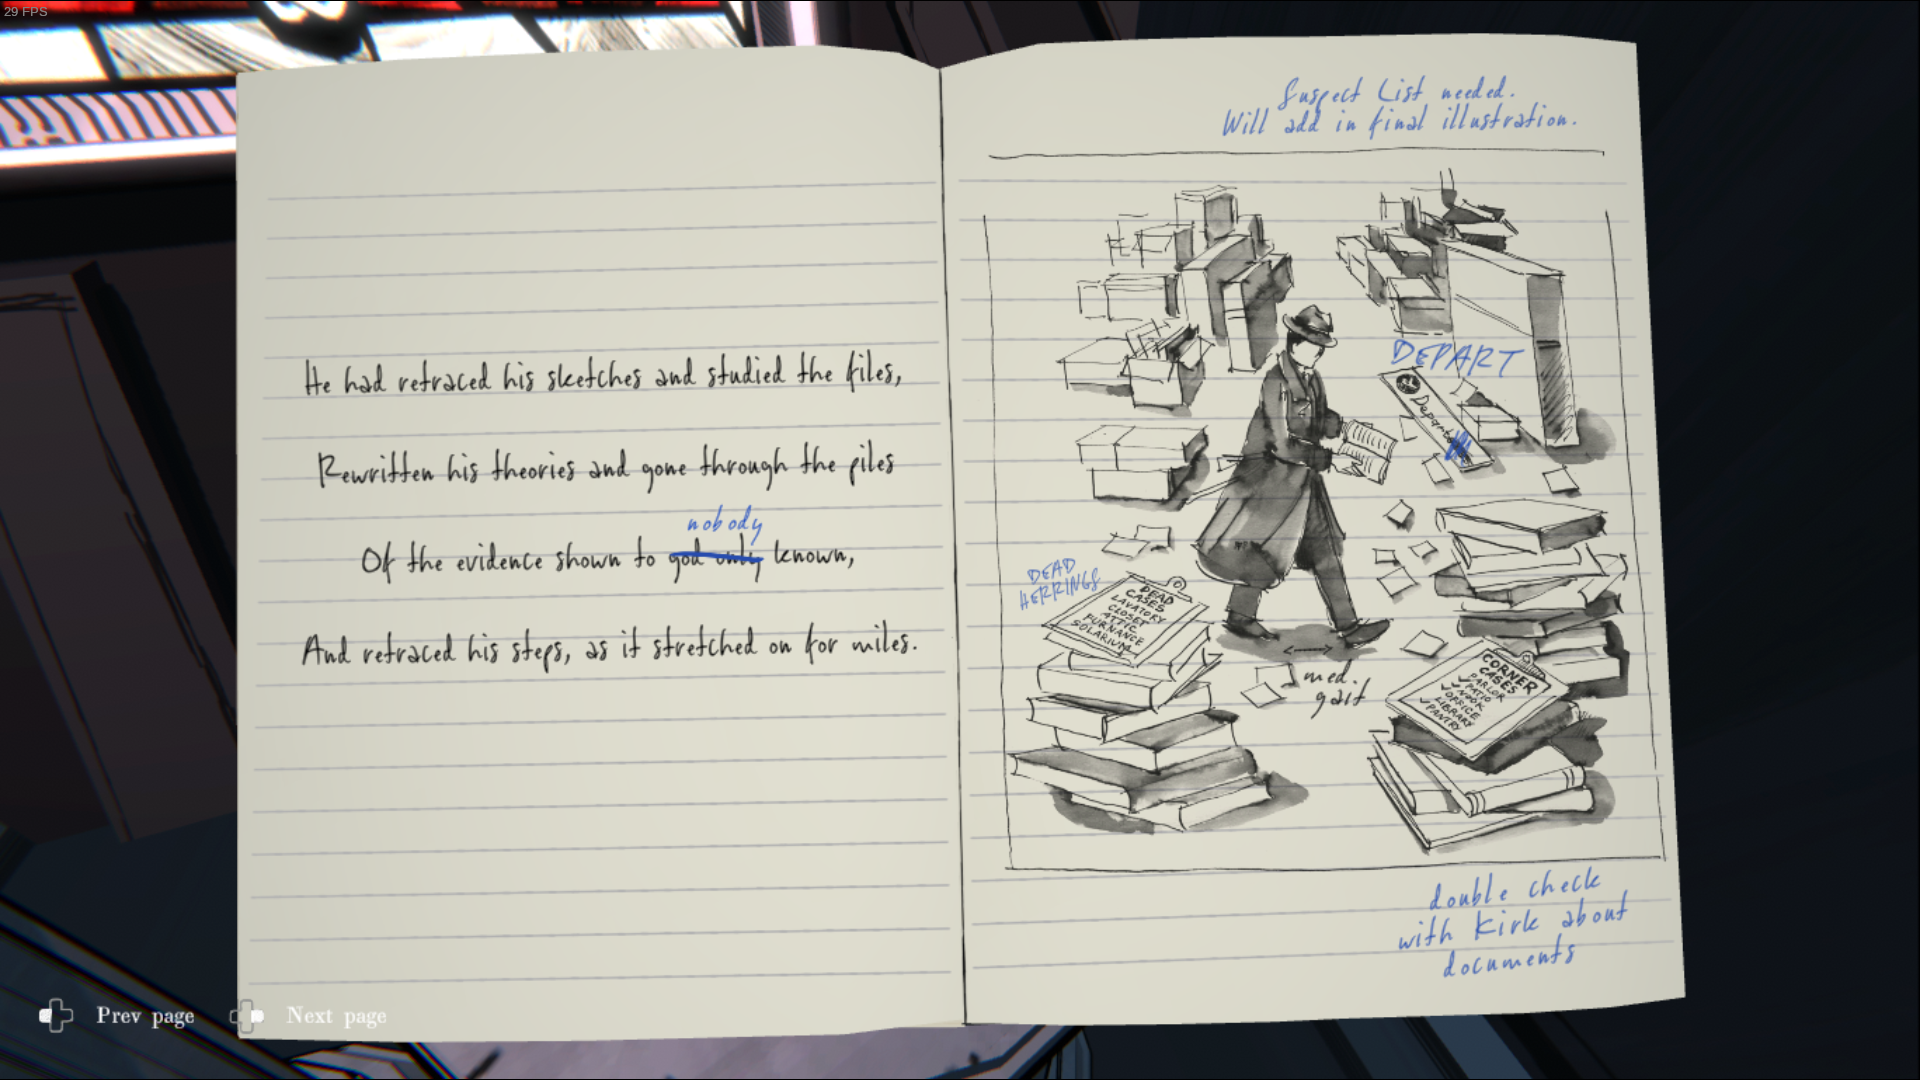 29 FPS
He had retraced his sketches and studied the files,
Rewritten his theories and gone through the piles
nobody
Of the evidence shown to god only known,
And retraced his steps, as it stretched on for miles.
Suspect List needed.
Will add in final illustration.
DEPART
DEAD
HERRINGS
DEAD
CASES
LAVATORY
CLOSET
ATTIC
FURNANCE
SOLARIUM
med.
gait
CORNER
CASES
✓PARLOR
✓PATIO
✓NOOK
✓OFFICE
✓LIBRARY
✓PANTRY
double check
with Kirk about
documents
Prev page
Next page